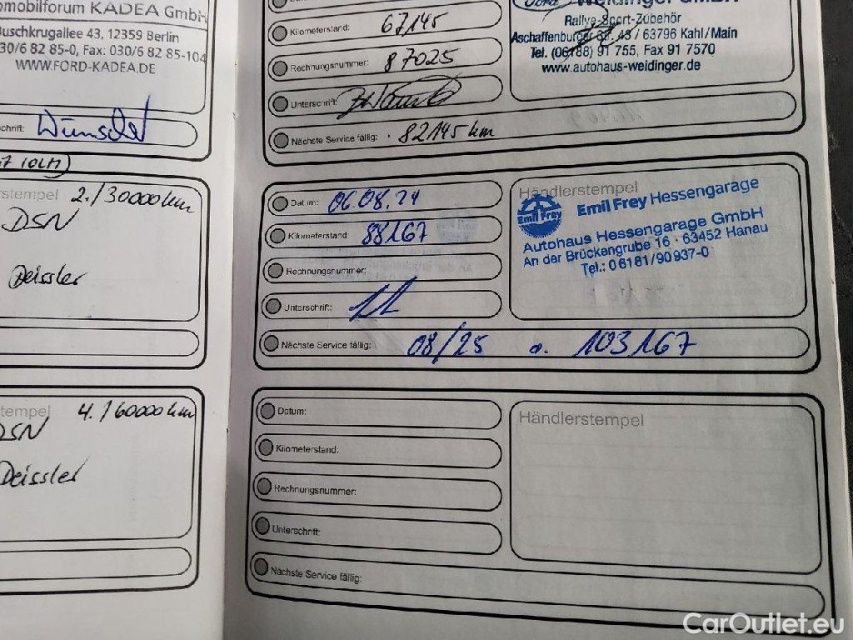 omobilforum KADEA GmbH
Buschkrugallee 43, 12359 Berlin
030/6 82 85-0, Fax: 030/6 82 85-104
WWW.FORD-KADEA.DE
chrift:
Wünschel
stempel 2./30000km
DSN
Deissler
tempel 4./60000km
DSN
Deissler
Kilometerstand: 67145
Rechnungsnummer: 87025
Unterschrift:
Nächste Service fällig: 82145 km
Weidinger GmbH
Rallye-Sport-Zubehör
Aschaffenburger Str. 43 / 63796 Kahl/Main
Tel. (06188) 91 755, Fax 91 7570
www.autohaus-weidinger.de
Datum: 06.08.24
Kilometerstand: 88167
Rechnungsnummer:
Unterschrift:
Nächste Service fällig: 08/25 o. 103167
Händlerstempel
Emil Frey
Emil Frey Hessengarage
Autohaus Hessengarage GmbH
An der Brückengrube 16 · 63452 Hanau
Tel.: 06181/90937-0
Datum:
Kilometerstand:
Rechnungsnummer:
Unterschrift:
Nächste Service fällig:
Händlerstempel
CarOutlet.eu